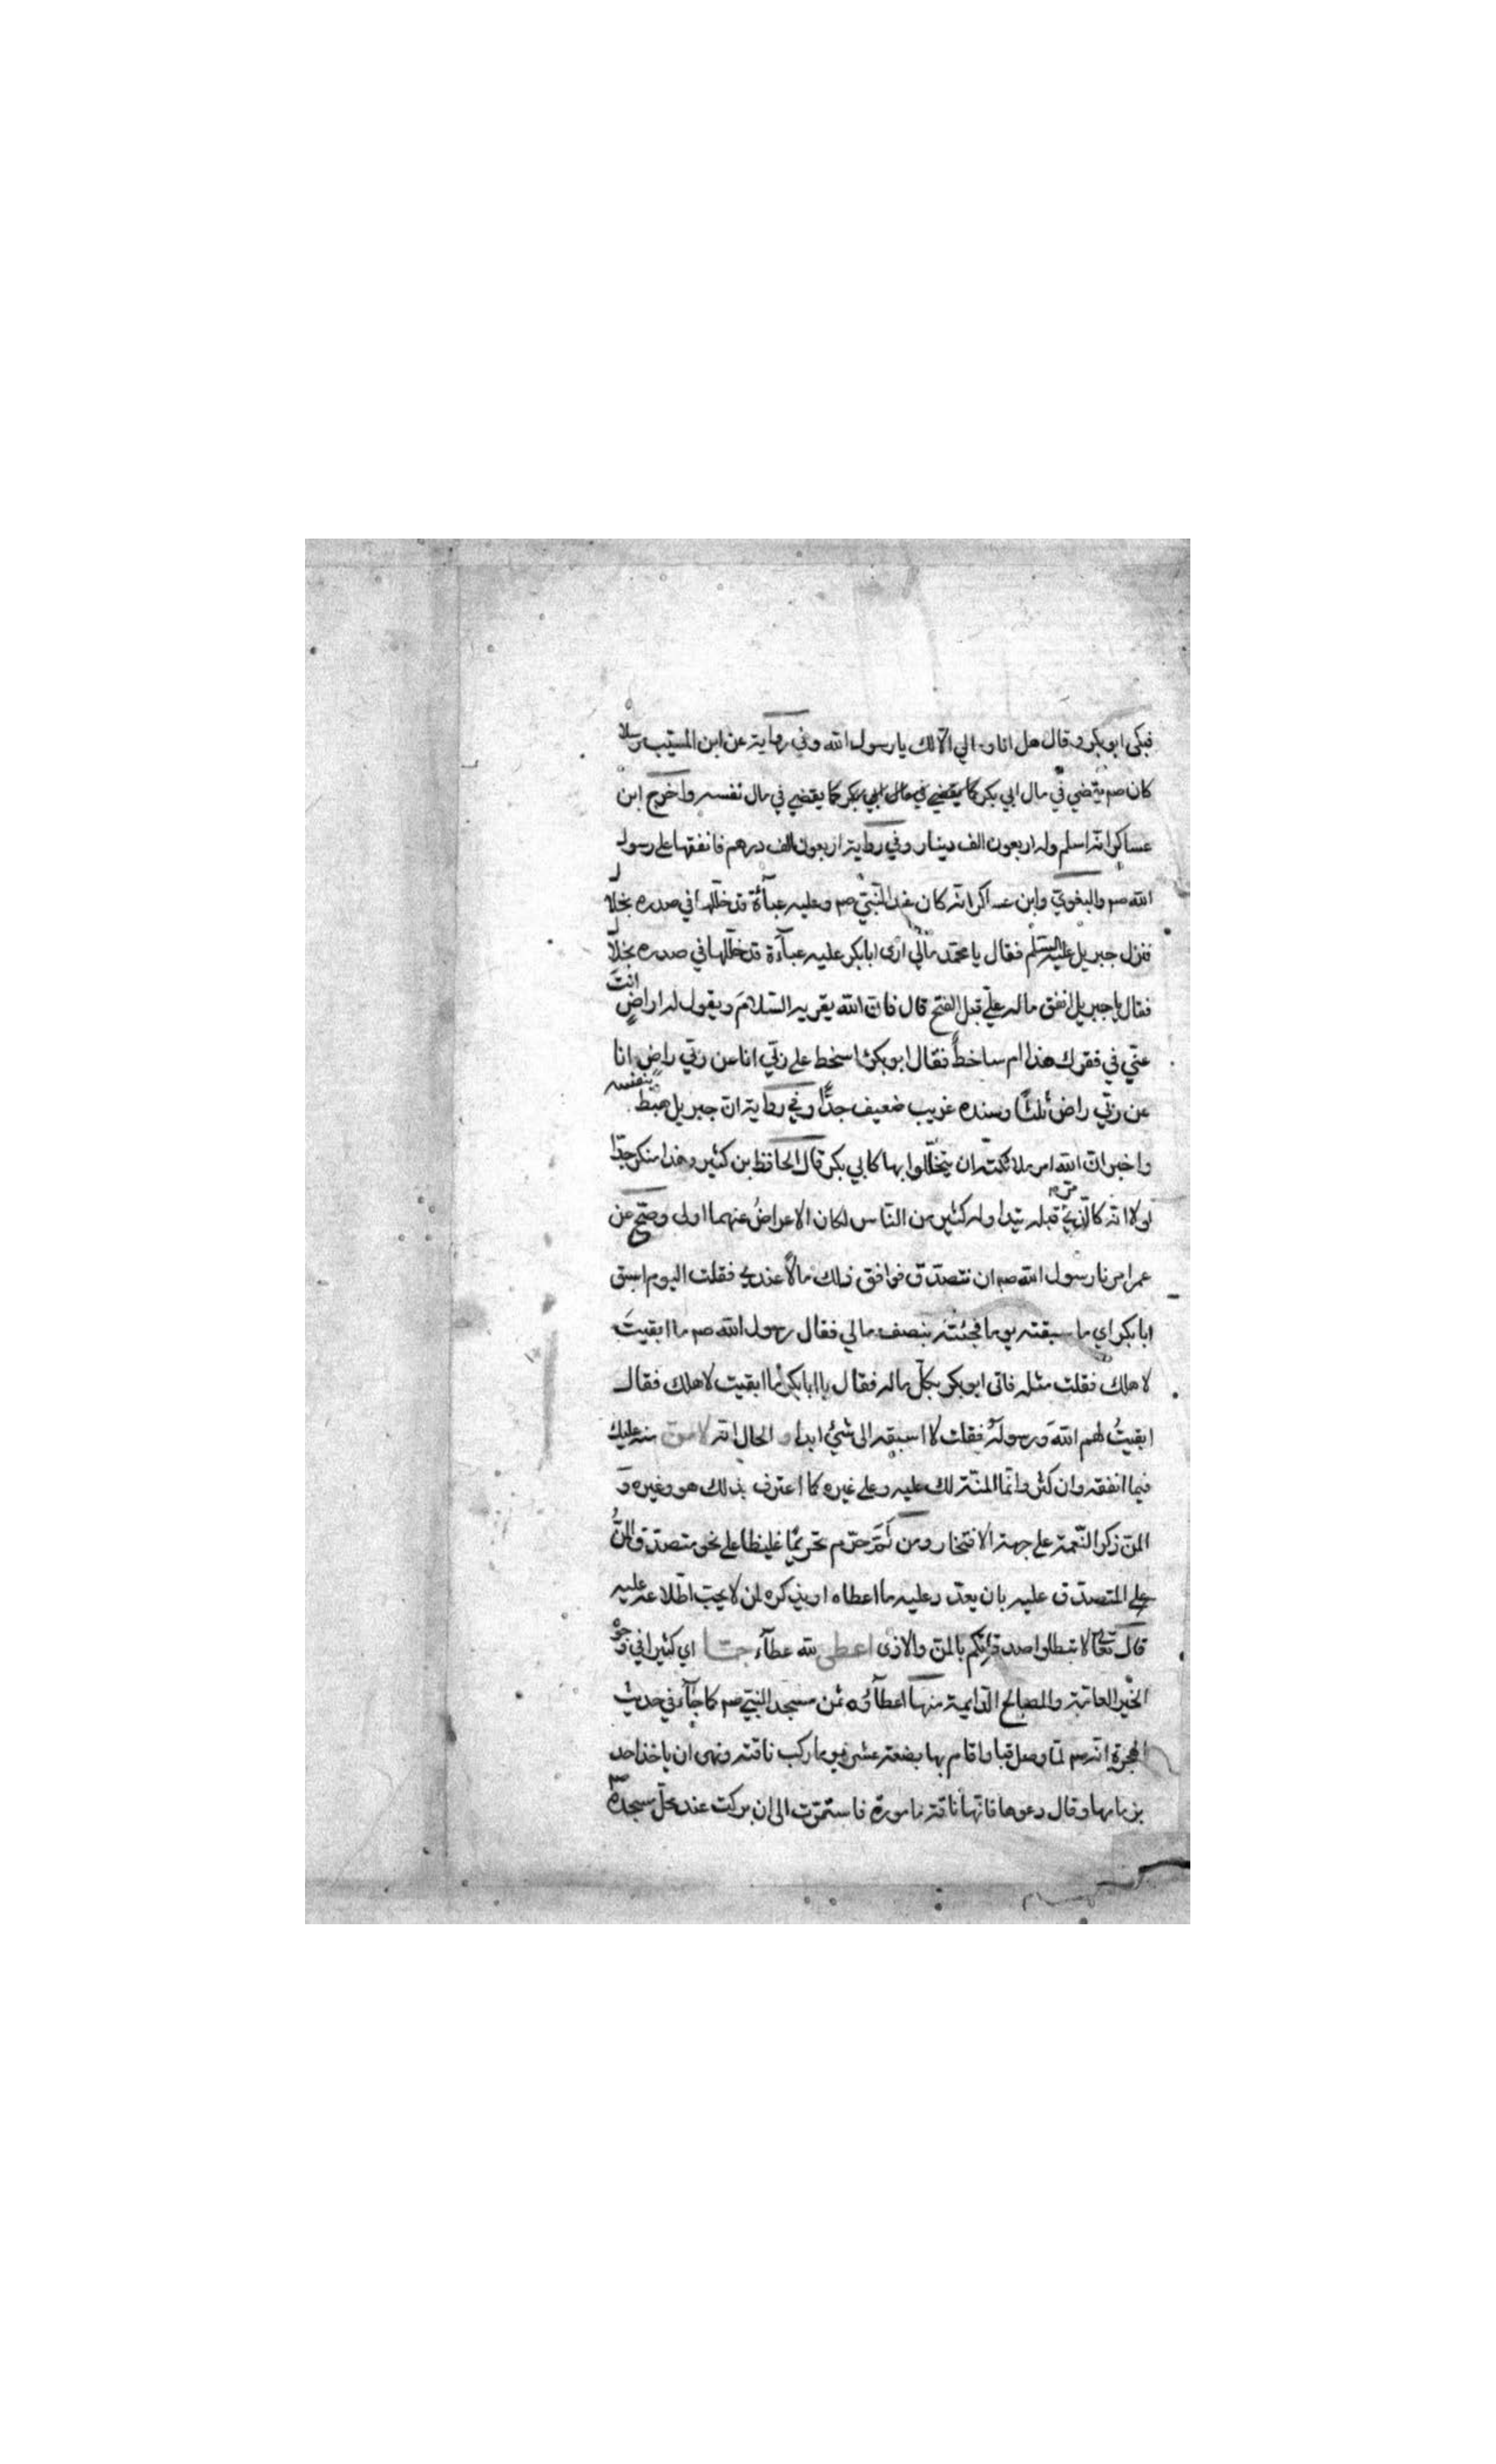 فبكى ابو بكر وقال هل انا ومالي الّا لك يا رسول الله وفي رواية عن ابن المسيّب مرسلا
كان صم يقضي في مال ابي بكر كما يقضي في مال ابي بكر كما يقضي في مال نفسه واخرج ابن
عساكر انّه اسلم وله اربعون الف دينار وفي رواية اربعون الف درهم فانفقها على رسول
الله صم والبغويّ وابن عساكر انّه كان عند النّبيّ صم وعليه عبآءة قد خلّلها في صدره بخلال
فنزل جبريل عليه السّلم فقال يا محمّد مالي ارى ابا بكر عليه عبآءة قد خلّلها في صدره بخلال
فقال يا جبريل انفق ماله عليّ قبل الفتح قال فانّ الله يقريه السّلامَ ويقول له اراضٍ انتَ
عنّي في فقرك هذا ام ساخطٌ فقال ابو بكر ءاسخط على ربّي انا عن ربّي راض انا
عن ربّي راض ثلثًا وسنده غريب ضعيف جدًّا وفي رواية انّ جبريل هبط بنفسه
واخبر انّ الله امر ملائكته ان يتخلّلوا بها كابي بكر قال الحافظ بن كثير وهذا منكر جدّا
لولا انّه كالّذي قبله يتداوله كثير من النّاس لكان الاعراضُ عنهما اولى وصحّ عن
عمر امرنا رسول الله صم ان نتصدّق فوافق ذلك مالًا عندي فقلت اليوم اسبق
ابا بكر اي ما سبقته يوما فجئته بنصف مالي فقال رسول الله صم ما ابقيتَ
لاهلك فقلت مثله فاتى ابو بكر بكلّ ماله فقال يا ابا بكر ما ابقيت لاهلك فقال
ابقيتُ لهم اللهَ ورسولَهُ فقلت لا اسبقه الى شئ ابدا و الحال انّه لا منّ منه عليك
فيما انفقه وان كثر وانّما المنّة لك عليه وعلى غيره كما اعترف بذلك هو وغيره وَ
المنّ ذكر النّعمة على جهة الافتخار ومن ثَمَّ حرّم تحريمًا غليظا على نحو متصدّق المنُّ
على المتصدّق عليه بان يعدّد عليه ما اعطاه او يذكره لمن لا يحبّ اطّلاعه عليه
قال تعالى لا تبطلوا صدقاتكم بالمنّ والاذى اعطى لله عطآء جمّا اي كثيرا في وجوه
الخير العامّة والمصالح الدّايمة منها اعطآؤه ثمن مسجد النّبيّ صم كما جآء في حديث
الهجرة انّه صم لمّا وصل قبا واقام بها بضعة عشر يوما ركب ناقته ونهى ان ياخذ احد
بزمامها وقال دعوها فانّها ناقة مامورة فاستمرّت الى ان بركت عند محلّ مسجده صم